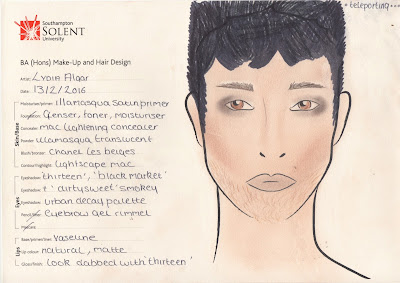 • teleporting...
Southampton
SOLENT
University
BA (Hons) Make-Up and Hair Design
Artist: Lyoie Algar
Date: 13/2/2016
Skin/Base
Moisturiser/primer: illamasqua satin primer
Foundation: Clenser, toner, moisturiser
Concealer: mac lightening concealer
Powder: illamasqua translucent
Blush/bronzer: Chanel les beiges
Contour/highlight: lightscape mac
Eyes
Eyeshadow: 'thirteen', 'black market'
Eyeshadow: + 'dirtysweet' smokey
Eyeshadow: urban decay palette
Pencil/liner: eyebrow gel rimmel
Mascara:
Lips
Base/primer/liner: vaseline
Lip colour: natural, matte
Gloss/finish: look dabbed with 'thirteen'